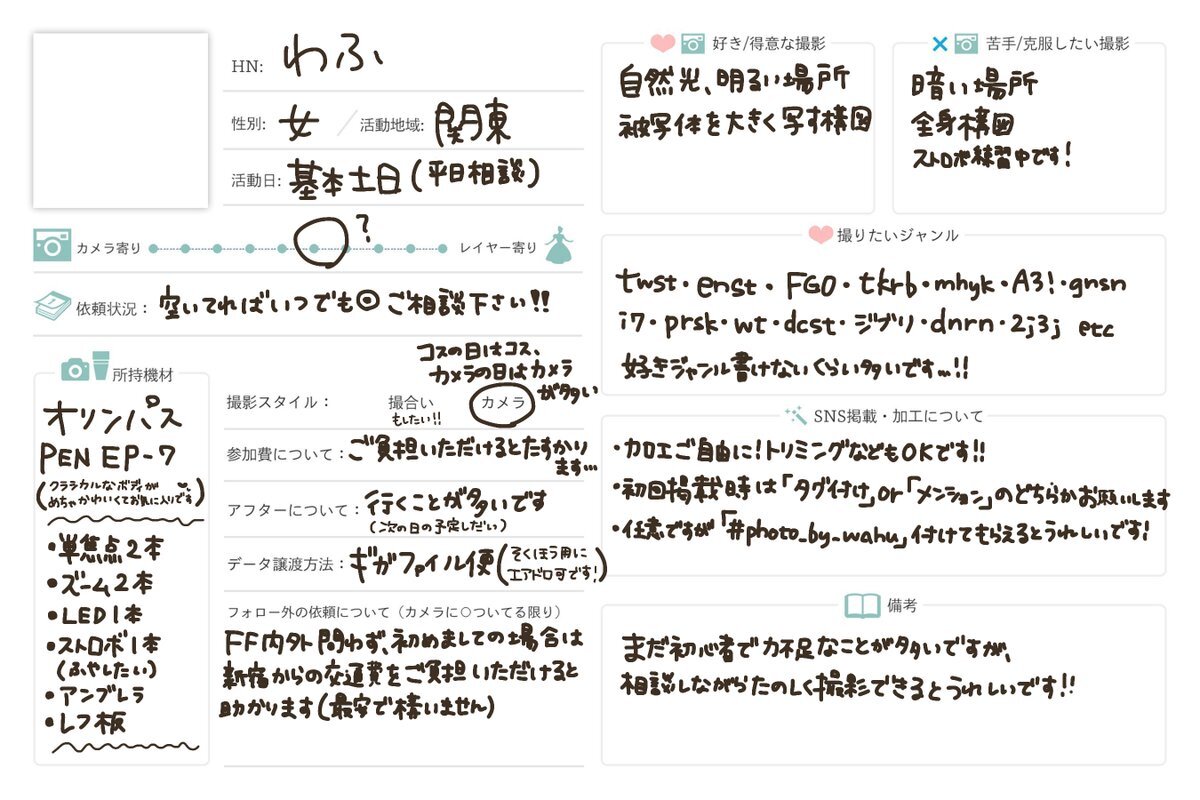 HN: わふ
性別: 女 / 活動地域: 関東
活動日: 基本土日(平日相談)
カメラ寄り ? レイヤー寄り
依頼状況： 空いてればいつでも◎ ご相談下さい!!
所持機材
オリンパス
PEN EP-7
(クラシカルなボディが
めちゃかわいくてお気に入りです)
・単焦点2本
・ズーム2本
・LED1本
・ストロボ1本
(ふやしたい)
・アンブレラ
・レフ板
コスの日はコス、
カメラの日はカメラ
が多い
撮影スタイル： 撮合い カメラ
もしたい!!
参加費について： ご負担いただけるとたすかり
ます…
アフターについて： 行くことが多いです
(次の日の予定しだい)
データ譲渡方法： ギガファイル便(そくほう用に
エアドロ可です!)
フォロー外の依頼について（カメラに○ついてる限り）
FF内外問わず、初めましての場合は
新宿からの交通費をご負担いただけると
助かります(最安で構いません)
好き/得意な撮影
自然光、明るい場所
被写体を大きく写す構図
苦手/克服したい撮影
暗い場所
全身構図
ストロボ練習中です!
撮りたいジャンル
twst・enst・FGO・tkrb・mhyk・A3!・gnsn
i7・prsk・wt・dcst・ジブリ・dnrn・2j3j etc
好きジャンル書けないくらい多いです…!!
SNS掲載・加工について
・加工ご自由に!トリミングなどもOKです!!
・初回掲載時は「タグ付け」or「メンション」のどちらかお願いします
・任意ですが「#photo_by_wahu」付けてもらえるとうれしいです!
備考
まだ初心者で力不足なことが多いですが、
相談しながらたのしく撮影できるとうれしいです!!